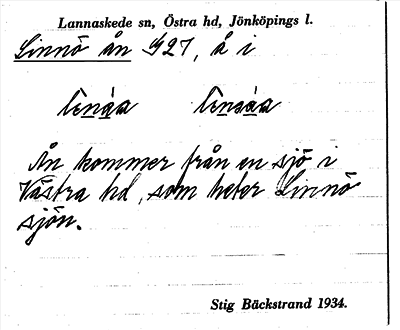 Lannaskede sn, Östra hd, Jönköpings l.
Linnö ån G27, å i
Ån kommer från en sjö i
Västra hd, som heter Linnö
sjön.
Stig Bäckstrand 1934.